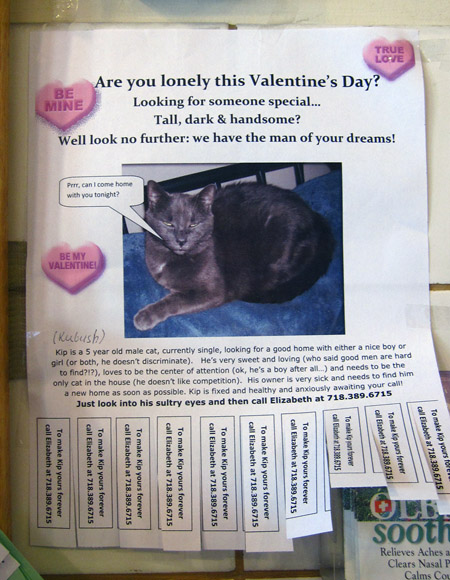 BE
MINE
TRUE
LOVE
Are you lonely this Valentine's Day?
Looking for someone special...
Tall, dark & handsome?
Well look no further: we have the man of your dreams!
Prrr, can I come home
with you tonight?
BE MY
VALENTINE!
(Kubush)
Kip is a 5 year old male cat, currently single, looking for a good home with either a nice boy or
girl (or both, he doesn't discriminate). He's very sweet and loving (who said good men are hard
to find?!?), loves to be the center of attention (ok, he's a boy after all...) and needs to be the
only cat in the house (he doesn't like competition). His owner is very sick and needs to find him
a new home as soon as possible. Kip is fixed and healthy and anxiously awaiting your call!
Just look into his sultry eyes and then call Elizabeth at 718.389.6715
To make Kip yours forever
call Elizabeth at 718.389.6715
To make Kip yours forever
call Elizabeth at 718.389.6715
To make Kip yours forever
call Elizabeth at 718.389.6715
To make Kip yours forever
call Elizabeth at 718.389.6715
To make Kip yours forever
call Elizabeth at 718.389.6715
To make Kip yours forever
call Elizabeth at 718.389.6715
To make Kip yours forever
call Elizabeth at 718.389.6715
To make Kip yours forever
call Elizabeth at 718.389.6715
To make Kip yours forever
call Elizabeth at 718.389.6715
To make Kip yours
call Elizabeth at 718.389.6715
sooth
Relieves Aches a
Clears Nasal P
Calms Cou